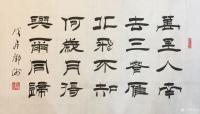 萬里人南
去三春雁
北飛不知
何歲月得
與爾同歸